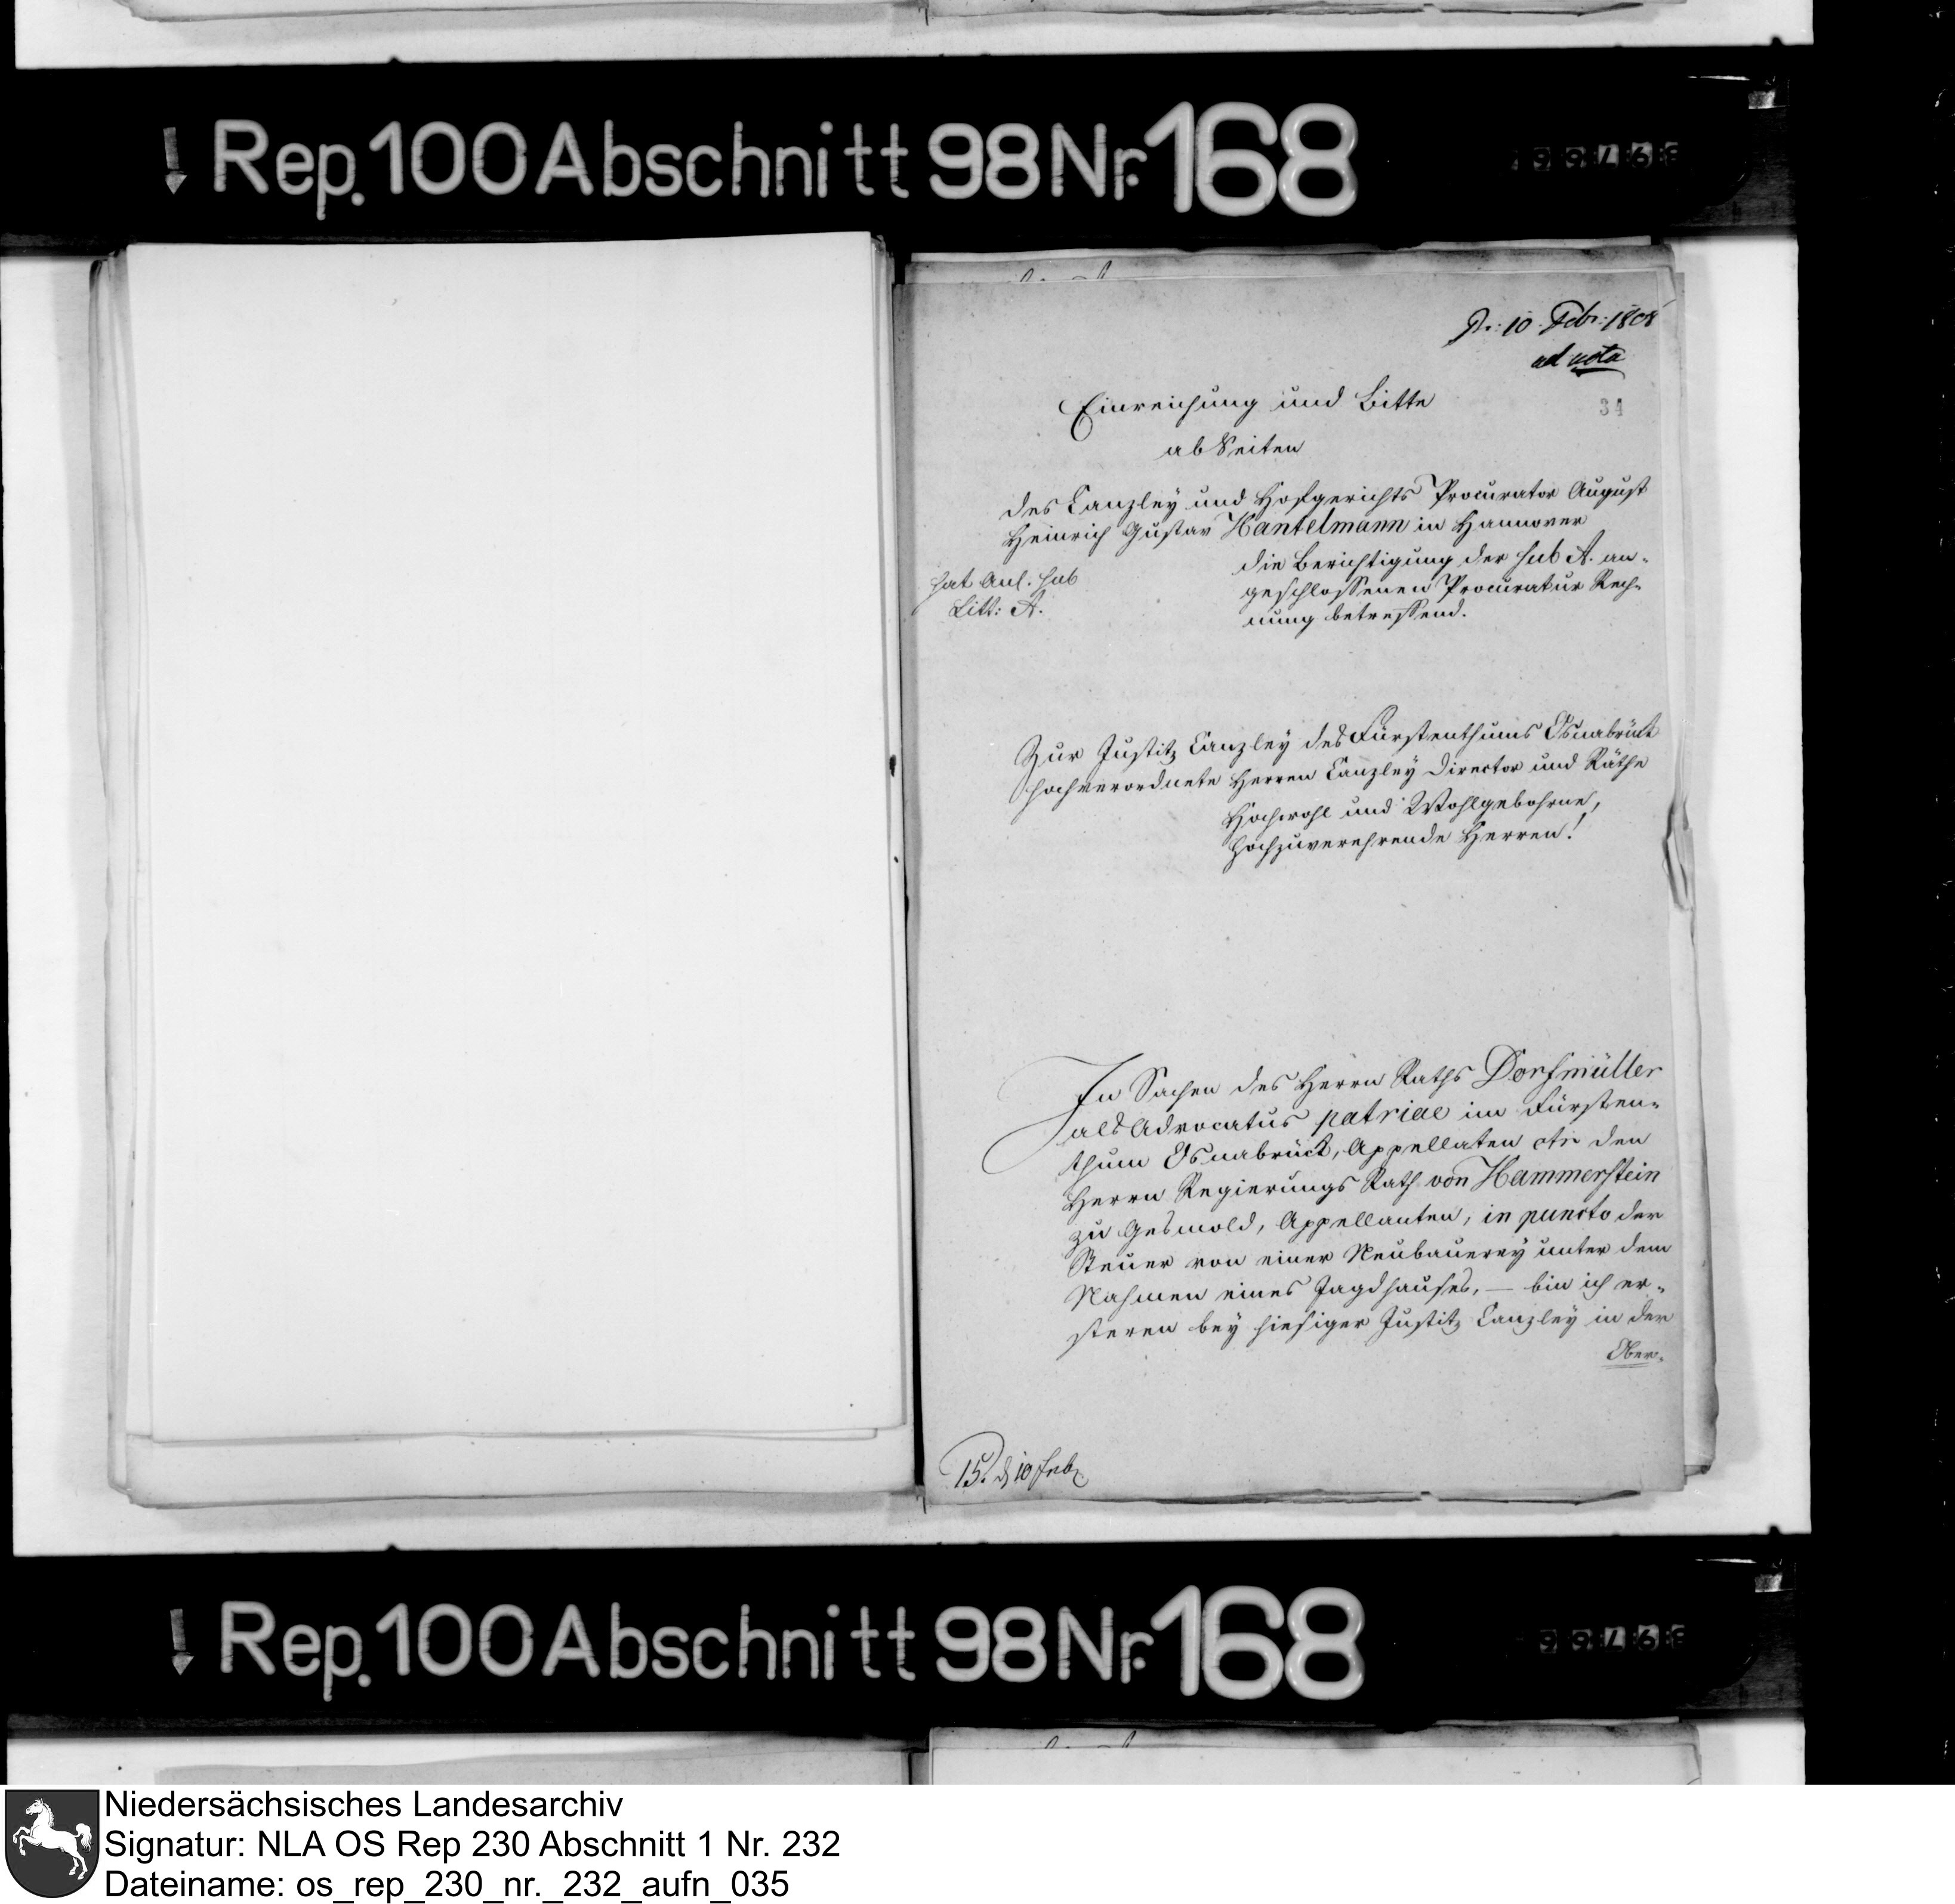 Rep. 100 Abschnitt 98 Nr. 168
Pr: 10. Febr: 1808
ad acta
34
Einreichung und Bitte
ab Seiten
des Canzley und Hofgerichts Procurator August
Heinrich Gustav Hantelmann in Hannover
die Berichtigung der sub A. an-
geschlossenen Procuratur Rech-
nung betreffend.
hat Anl. sub
Litt: A.
Zur Justitz Canzley des Fürstenthums Osnabrück
hochverordnete Herren Canzley Director und Räthe
Hochwohl und Wohlgebohrne,
Hochzuverehrende Herren!
In Sachen des Herrn Raths Dorfmüller
als Advocatus patriae im Fürsten-
thum Osnabrück, Appellaten ctr den
Herrn Regierungs Rath von Hammerstein
zu Gesmold, Appellanten, in puncto der
Steuer von einer Neubauerey unter dem
Nahmen eines Jagdhauses, — bin ich er-
steren bey hiesiger Justitz Canzley in der
Ober-
15. d 10 Feb
Rep. 100 Abschnitt 98 Nr. 168
Niedersächsisches Landesarchiv
Signatur: NLA OS Rep 230 Abschnitt 1 Nr. 232
Dateiname: os_rep_230_nr._232_aufn_035